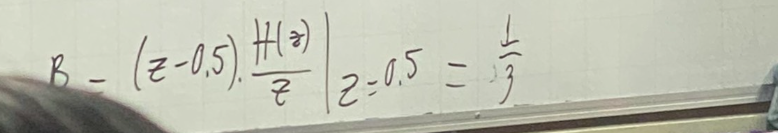 B = (z-0.5). H(z)/z | z=0.5 = 1/3